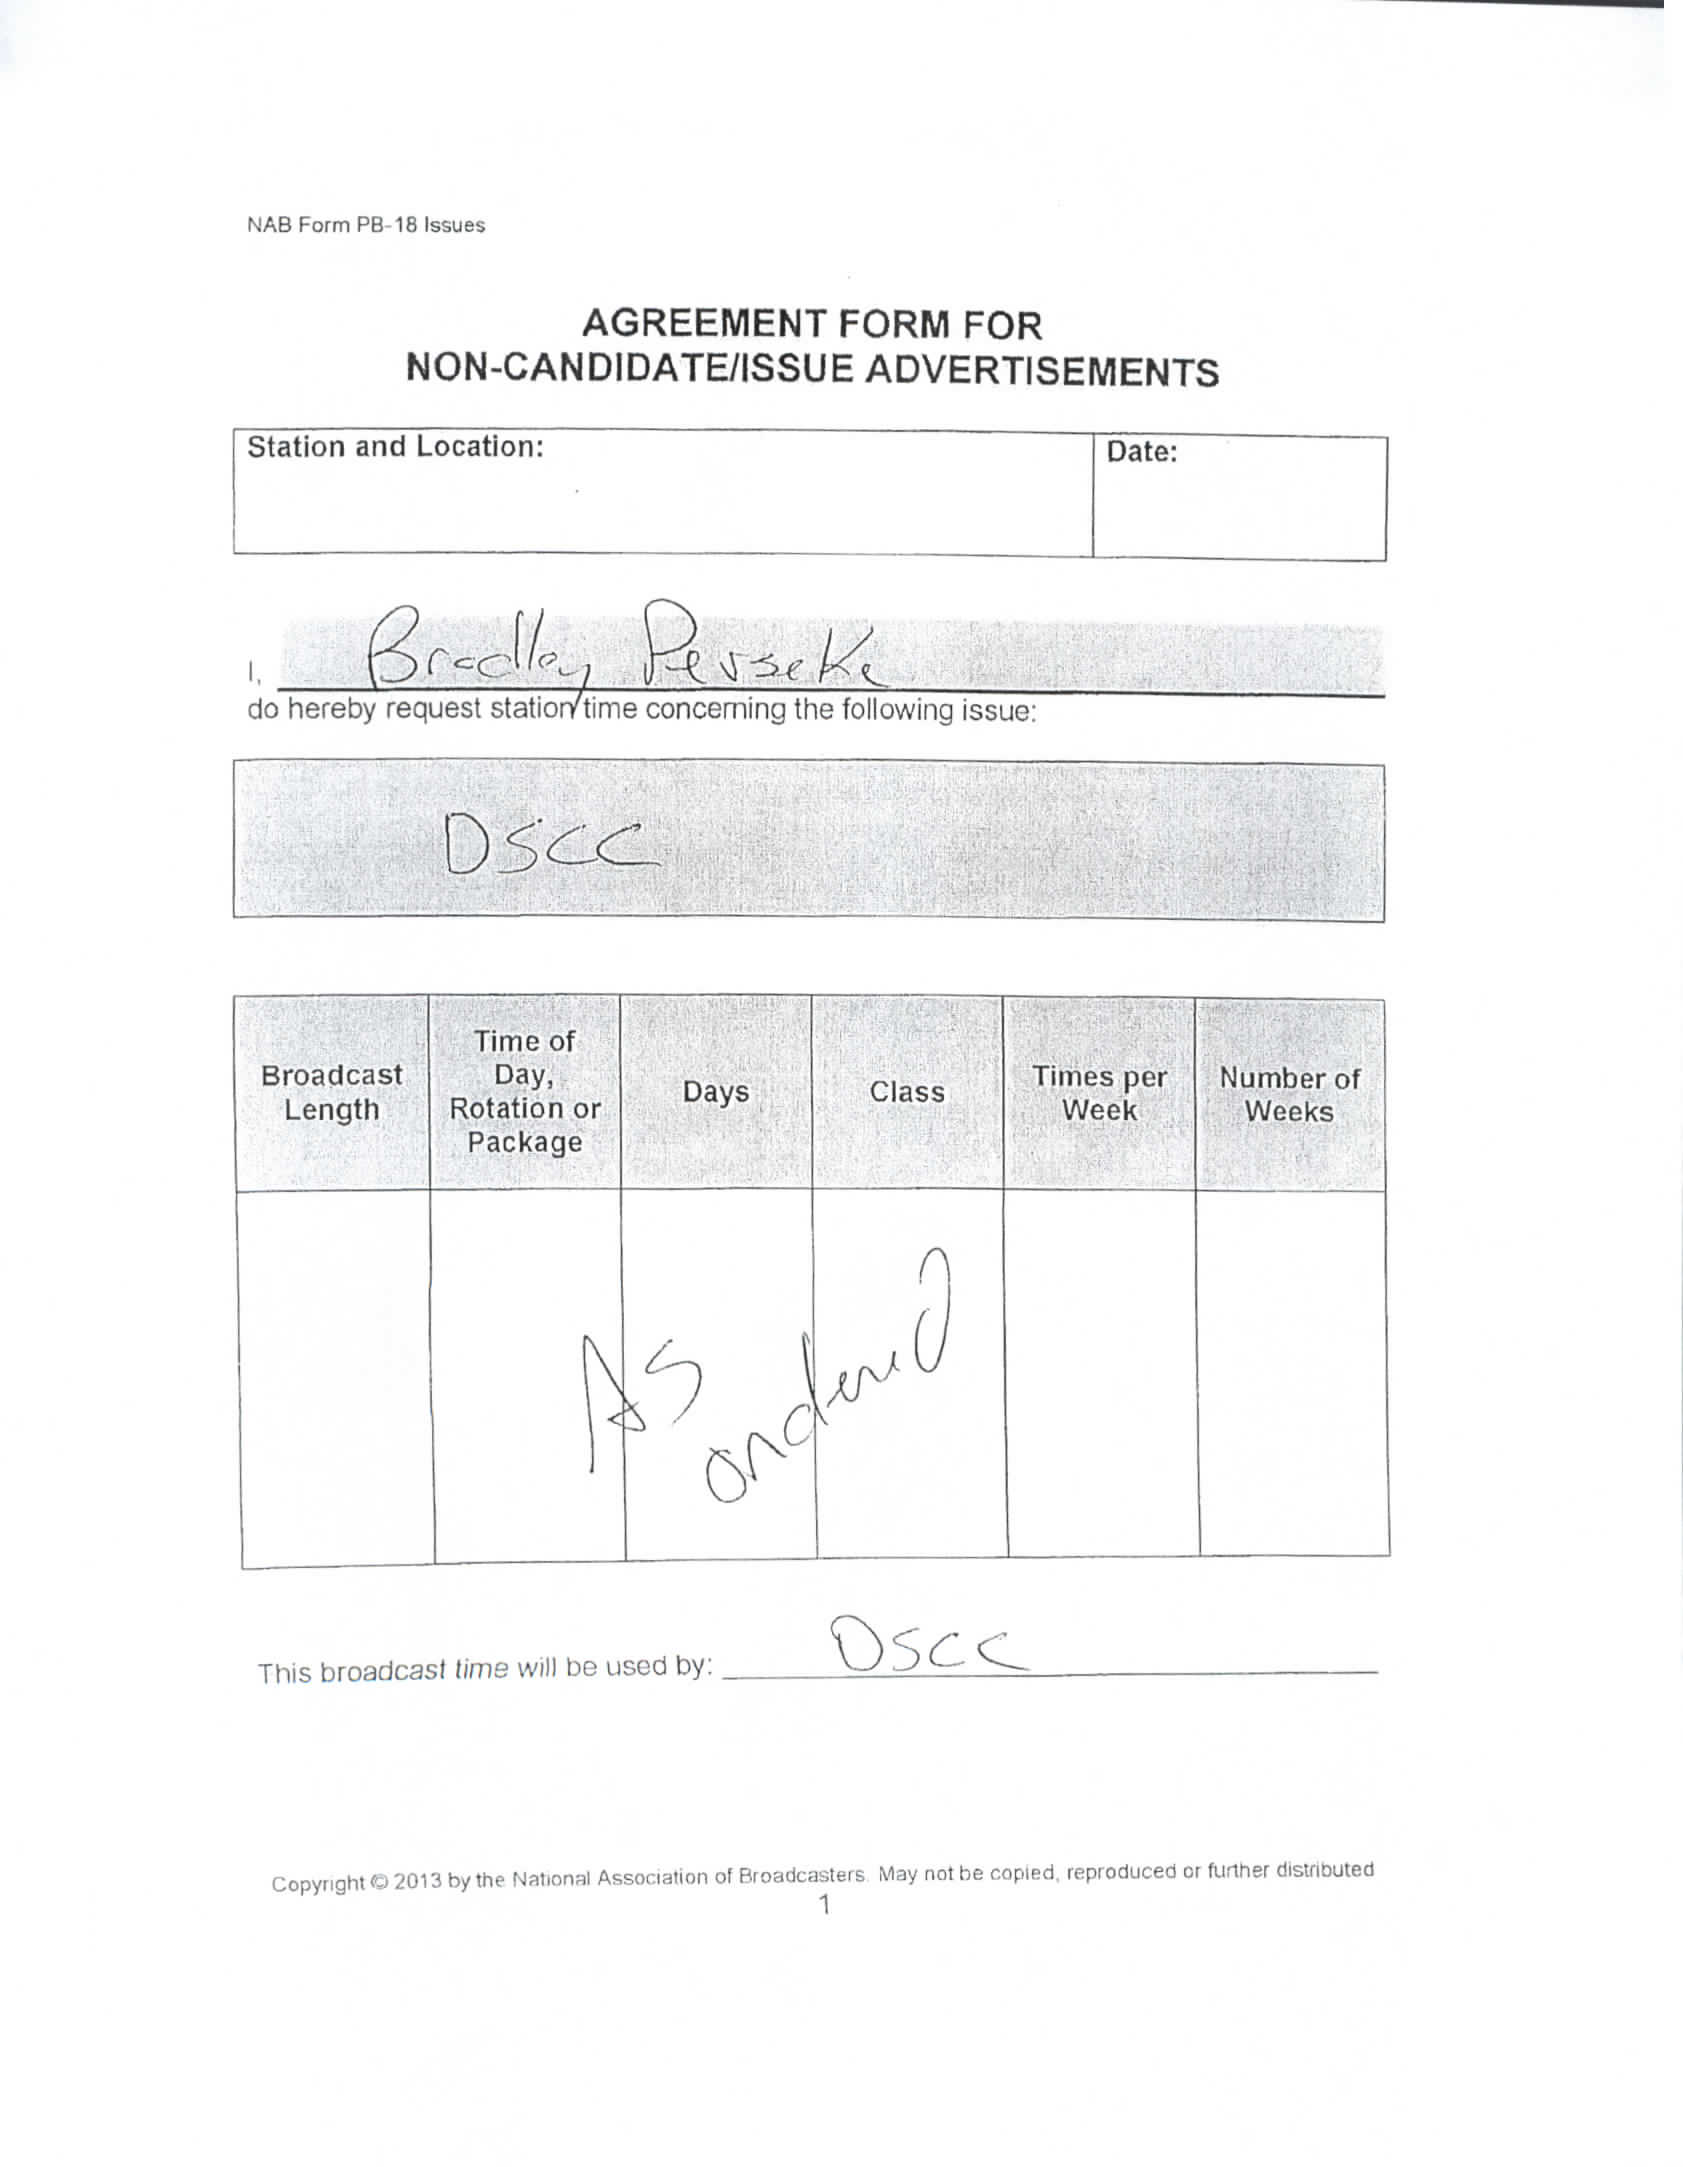 NAB Form PB-18 Issues
AGREEMENT FORM FOR
NON-CANDIDATE/ISSUE ADVERTISEMENTS
Station and Location:
Date:
I, Bradley Perseke
do hereby request station time concerning the following issue:
DSCC
Broadcast Length
Time of Day, Rotation or Package
Days
Class
Times per Week
Number of Weeks
As
ordered
This broadcast time will be used by: DSCC
Copyright © 2013 by the National Association of Broadcasters. May not be copied, reproduced or further distributed
1